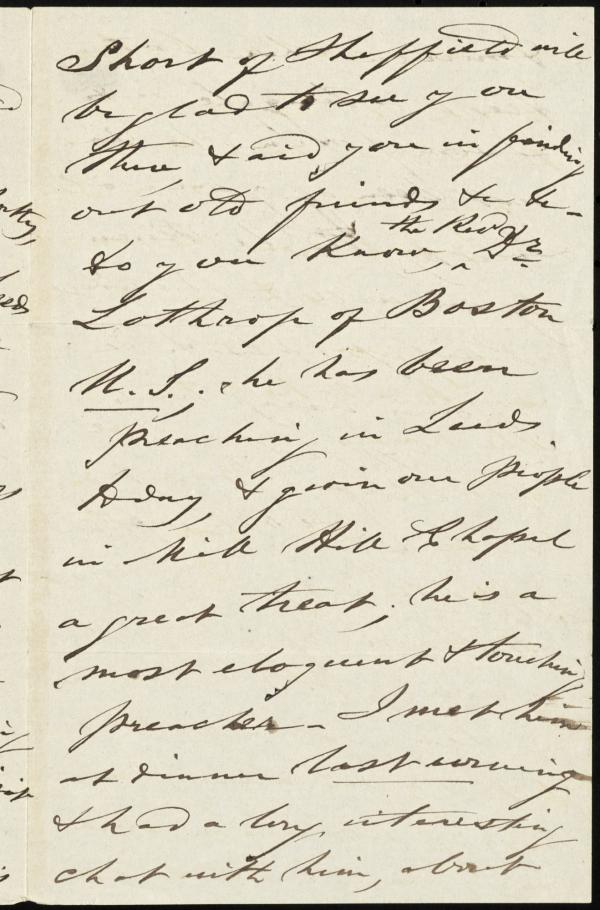 Short of Sheffield will
be glad to see you
there, & aid you in finding
out old friends &c &c-
Do you know, the Revd Dr
Lothrop of Boston
U.S., he has been
preaching in Leeds
today, & givin our people
in Mill Hill Chapel
a great treat; he is a
most eloquent & touching
preacher - I met him
at dinner last evening
& had a long interesting
chat with him, about